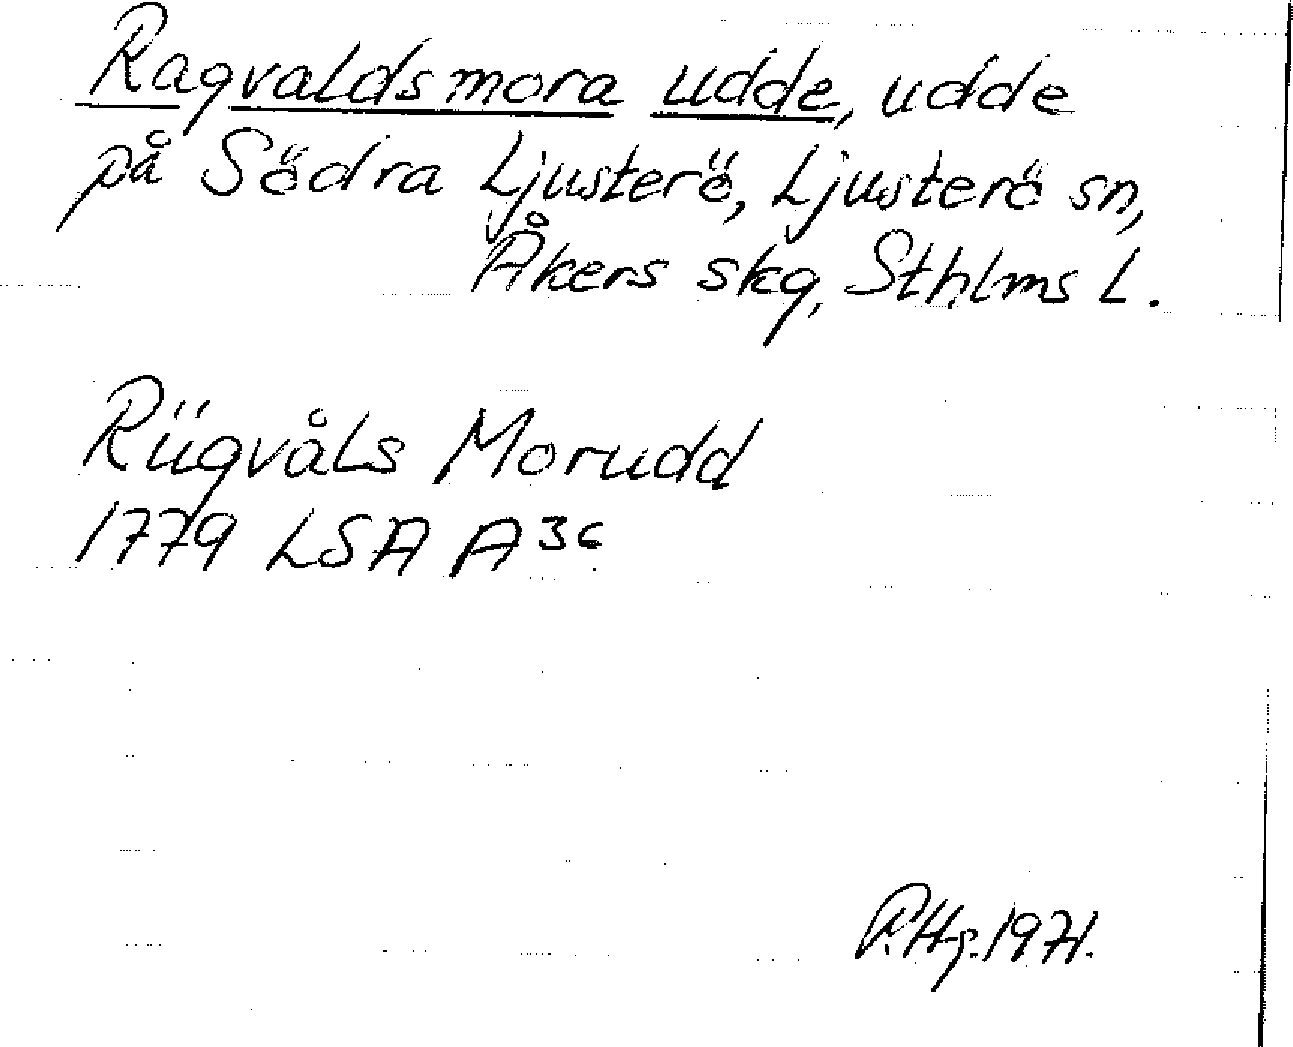 Ragvaldsmora udde, udde
på Södra Ljusterö, Ljusterö sn,
Åkers skg, Sthlms L.
Riigvåls Morudd
1779 LSA A 36
R.Hg.1971.